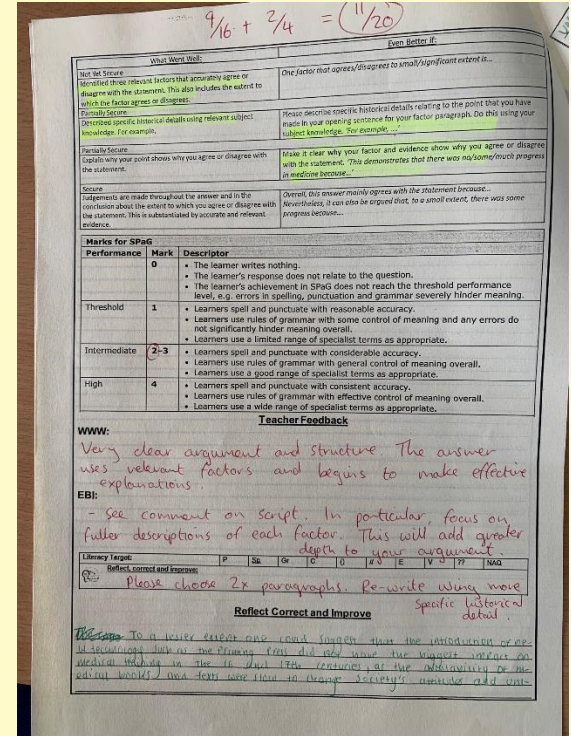 9/16 + 2/4 = 11/20
What Went Well:
Even Better if:
Not Yet Secure
Identified three relevant factors that accurately agree or
disagree with the statement. This also includes the extent to
which the factor agrees or disagrees.
One factor that agrees/disagrees to small/significant extent is...
Partially Secure
Described specific historical details using relevant subject
knowledge. For example,
Please describe specific historical details relating to the point that you have
made in your opening sentence for your factor paragraph. Do this using your
subject knowledge. 'For example, ...'
Partially Secure
Explain why your point shows why you agree or disagree with
the statement.
Make it clear why your factor and evidence show why you agree or disagree
with the statement. 'This demonstrates that there was no/some/much progress
in medicine because...'
Secure
Judgements are made throughout the answer and in the
conclusion about the extent to which you agree or disagree with
the statement. This is substantiated by accurate and relevant
evidence.
Overall, this answer mainly agrees with the statement because...
Nevertheless, it can also be argued that, to a small extent, there was some
progress because...
Marks for SPaG
Performance Mark Descriptor
0 • The learner writes nothing.
• The learner's response does not relate to the question.
• The learner's achievement in SPaG does not reach the threshold performance
level, e.g. errors in spelling, punctuation and grammar severely hinder meaning.
Threshold 1 • Learners spell and punctuate with reasonable accuracy.
• Learners use rules of grammar with some control of meaning and any errors do
not significantly hinder meaning overall.
• Learners use a limited range of specialist terms as appropriate.
Intermediate 2-3 • Learners spell and punctuate with considerable accuracy.
• Learners use rules of grammar with general control of meaning overall.
• Learners use a good range of specialist terms as appropriate.
High 4 • Learners spell and punctuate with consistent accuracy.
• Learners use rules of grammar with effective control of meaning overall.
• Learners use a wide range of specialist terms as appropriate.
Teacher Feedback
WWW:
Very clear argument and structure. The answer
uses relevant factors and begins to make effective
explanations.
EBI:
- See comment on script. In particular, focus on
fuller descriptions of each factor. This will add greater
depth to your argument.
Literacy Target: P Sp Gr C () // E V ?? NAQ
Reflect, correct and improve:
Please choose 2x paragraphs. Re-write using more
specific historical
detail.
Reflect Correct and Improve
To a lesser extent one could suggest that the introduction of ne-
w technology such as the Printing Press did not have the biggest impact on
medical in the 16 and 17th centuries, as the of me-
dical books and texts were slow to change society's attitudes and